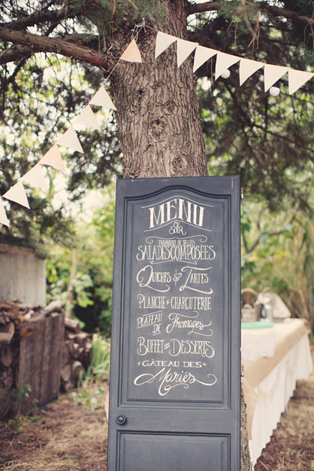 MENU
SALADES COMPOSÉES
QUICHES & TARTES
PLANCHE DE CHARCUTERIE
PLATEAU DE Fromages
BUFFET DE DESSERTS
GÂTEAU DES
Mariés